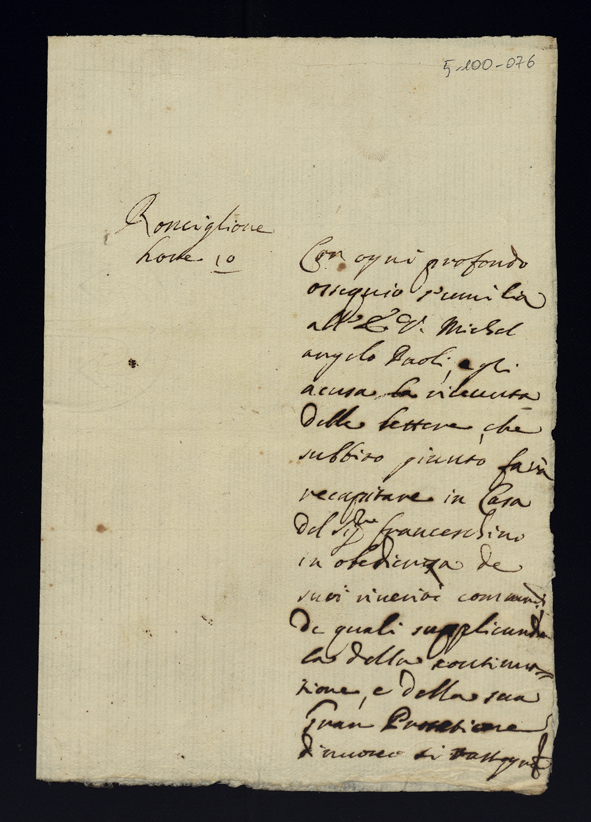 5-100-076
Ronciglione
hore 10
Con ogni profondo
ossequio s'umilia
all' Michel
angelo Paoli, e gli
acusa la riceuuta
delle lettere, che
subbito giunto farà
recapitare in Casa
del Sig.re Franceschino
in obedienza de
suoi riueriti comandi
de quali supplicando
la della continua=
tione, e della sua
Gran Protetione
di nuouo si rassegna